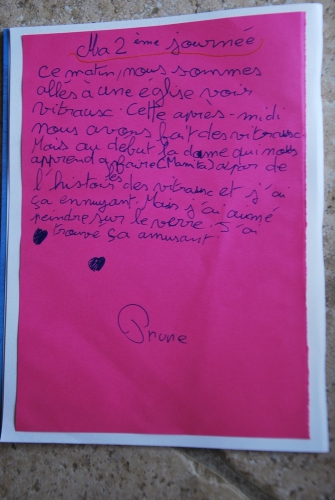 Ma 2 ème journée
Ce matin, nous sommes
allés à une eglise voir
vitrausc. Cette après-midi
nous avons fait des vitrausc
Mais au début la dame qui nous
apprend affaire (Mamita) a par de
l'histoir des vitrausc et j'ai
les
ça ennuyant. Mais j'ai aumé
peindre sur le verre. J'ai
trouvé ça amusant
Prune